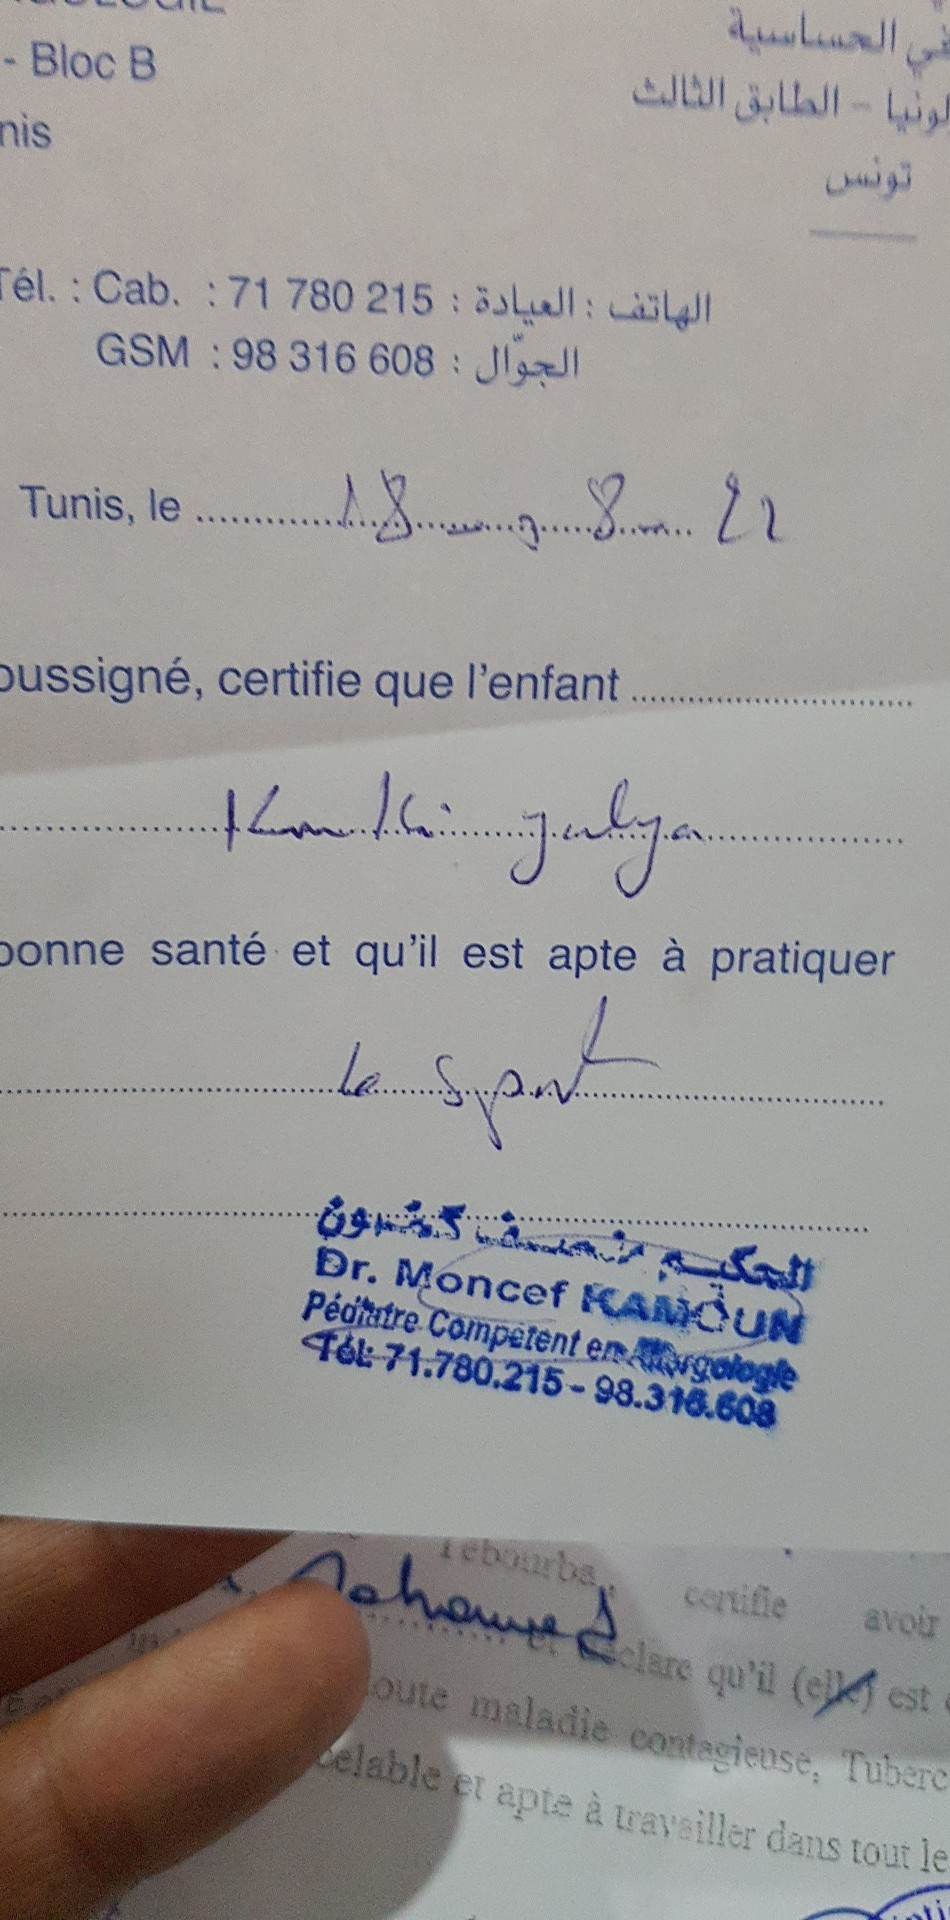 - Bloc B
في الحساسية
لونيا - الطابق الثالث
nis
تونس
Tél. : Cab. : 71 780 215 : الهاتف : العيادة
GSM : 98 316 608 : الجوّال
Tunis, le 18 8 22
oussigné, certifie que l'enfant
yalya
bonne santé et qu'il est apte à pratiquer
le sport
الحكيم منصف كمون
Dr. Moncef KAMOUN
Pédiatre Compétent en Allergologie
Tél: 71.780.215 - 98.316.608
Tebourba, certifie avoir
Mohamed
et déclare qu'il (elle) est
toute maladie contagieuse, Tuberc
celable et apte à travailler dans tout le